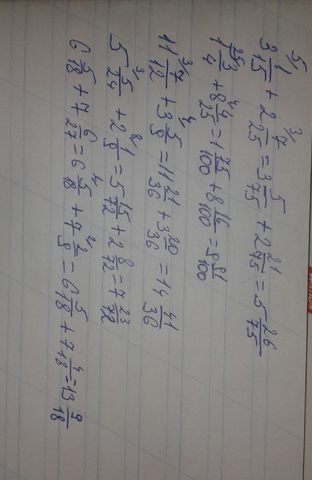 3 1/15 ⁵ + 2 7/25 ³ = 3 5/75 + 2 21/75 = 5 26/75
1 3/4 ²⁵ + 8 4/25 ⁴ = 1 75/100 + 8 16/100 = 9 91/100
11 7/12 ³ + 3 5/9 ⁴ = 11 21/36 + 3 20/36 = 14 41/36
5 5/24 ³ + 2 1/9 ⁸ = 5 15/72 + 2 8/72 = 7 23/72
6 5/18 + 7 6/27 = 6 5/18 + 7 2/9 ² = 6 5/18 + 7 4/18 = 13 9/18